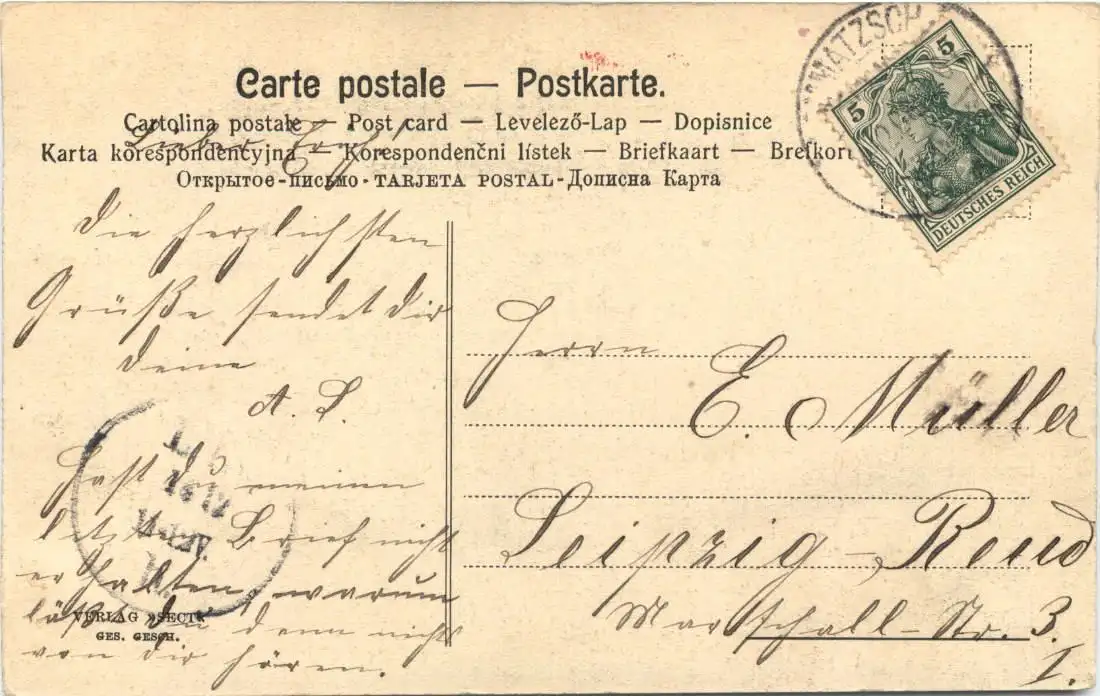 Carte postale — Postkarte.
Cartolina postale — Post card — Levelező-Lap — Dopisnice
Karta korespondencyjna — Korespondenčni lístek — Briefkaart — Brefkort
Открытое-письмо - TARJETA POSTAL - Дописна Карта
5 5
DEUTSCHES REICH
MATZSCH
Lieber
Die herzlichsten
Grüße sendet dir
Deine
A. L.
Hast du meinen
letzten Brief nicht
erhalten, warum
läßt du denn nichts
von dir hören.
VERLAG »SECT«
GES. GESCH.
Herrn
E. Müller
Leipzig-Reud
Marschall-Str. 3.
I.